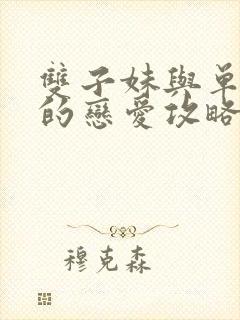 雙子妹與單
的戀愛攻略
穆克森